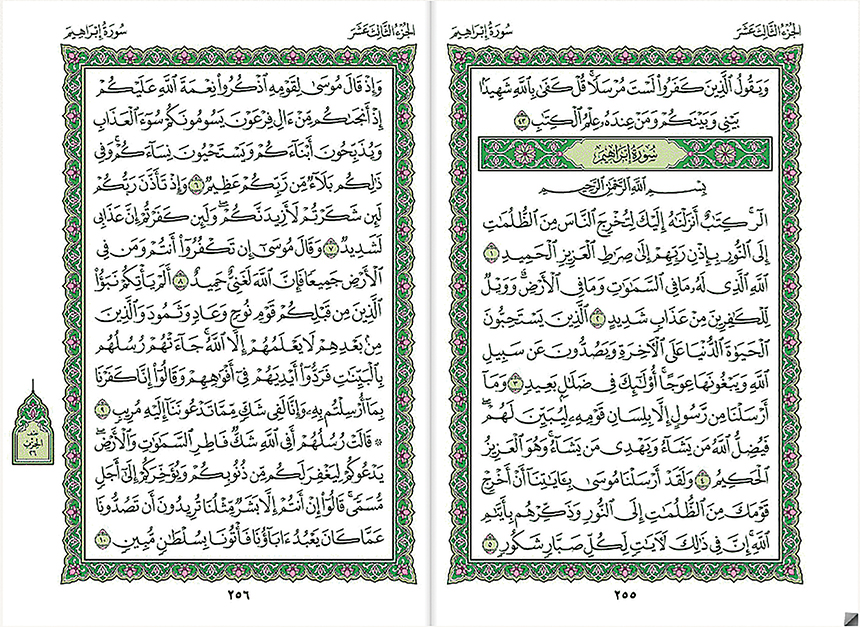 الجزء الثالث عشر
سورة إبراهيم
وَيَقُولُ الَّذِينَ كَفَرُوا۟ لَسْتَ مُرْسَلًا ۚ قُلْ كَفَىٰ بِاللَّهِ شَهِيدًۢا
بَيْنِى وَبَيْنَكُمْ وَمَنْ عِندَهُۥ عِلْمُ الْكِتَٰبِ ٤٣
سورة إبراهيم
بِسْمِ اللَّهِ الرَّحْمَٰنِ الرَّحِيمِ
الٓر ۚ كِتَٰبٌ أَنزَلْنَٰهُ إِلَيْكَ لِتُخْرِجَ النَّاسَ مِنَ الظُّلُمَٰتِ
إِلَى النُّورِ بِإِذْنِ رَبِّهِمْ إِلَىٰ صِرَٰطِ الْعَزِيزِ الْحَمِيدِ ١
اللَّهِ الَّذِى لَهُۥ مَا فِى السَّمَٰوَٰتِ وَمَا فِى الْأَرْضِ ۗ وَوَيْلٌ
لِّلْكَٰفِرِينَ مِنْ عَذَابٍ شَدِيدٍ ٢ الَّذِينَ يَسْتَحِبُّونَ
الْحَيَوٰةَ الدُّنْيَا عَلَى الْءَاخِرَةِ وَيَصُدُّونَ عَن سَبِيلِ
اللَّهِ وَيَبْغُونَهَا عِوَجًا ۚ أُو۟لَٰٓئِكَ فِى ضَلَٰلٍۭ بَعِيدٍ ٣ وَمَآ
أَرْسَلْنَا مِن رَّسُولٍ إِلَّا بِلِسَانِ قَوْمِهِۦ لِيُبَيِّنَ لَهُمْ ۖ
فَيُضِلُّ اللَّهُ مَن يَشَآءُ وَيَهْدِى مَن يَشَآءُ ۚ وَهُوَ الْعَزِيزُ
الْحَكِيمُ ٤ وَلَقَدْ أَرْسَلْنَا مُوسَىٰ بِـَٔايَٰتِنَآ أَنْ أَخْرِجْ
قَوْمَكَ مِنَ الظُّلُمَٰتِ إِلَى النُّورِ وَذَكِّرْهُم بِأَيَّىٰمِ
اللَّهِ ۚ إِنَّ فِى ذَٰلِكَ لَءَايَٰتٍ لِّكُلِّ صَبَّارٍ شَكُورٍ ٥
٢٥٥
الجزء الثالث عشر
سورة إبراهيم
وَإِذْ قَالَ مُوسَىٰ لِقَوْمِهِ اذْكُرُوا۟ نِعْمَةَ اللَّهِ عَلَيْكُمْ
إِذْ أَنجَىٰكُم مِّنْ ءَالِ فِرْعَوْنَ يَسُومُونَكُمْ سُوٓءَ الْعَذَابِ
وَيُذَبِّحُونَ أَبْنَآءَكُمْ وَيَسْتَحْيُونَ نِسَآءَكُمْ ۚ وَفِى
ذَٰلِكُم بَلَآءٌ مِّن رَّبِّكُمْ عَظِيمٌ ٦ وَإِذْ تَأَذَّنَ رَبُّكُمْ
لَئِن شَكَرْتُمْ لَأَزِيدَنَّكُمْ ۖ وَلَئِن كَفَرْتُمْ إِنَّ عَذَابِى
لَشَدِيدٌ ٧ وَقَالَ مُوسَىٰٓ إِن تَكْفُرُوٓا۟ أَنتُمْ وَمَن فِى
الْأَرْضِ جَمِيعًا فَإِنَّ اللَّهَ لَغَنِىٌّ حَمِيدٌ ٨ أَلَمْ يَأْتِكُمْ نَبَؤُا۟
الَّذِينَ مِن قَبْلِكُمْ قَوْمِ نُوحٍ وَعَادٍ وَثَمُودَ ۛ وَالَّذِينَ
مِنۢ بَعْدِهِمْ ۛ لَا يَعْلَمُهُمْ إِلَّا اللَّهُ ۚ جَآءَتْهُمْ رُسُلُهُم
بِالْبَيِّنَٰتِ فَرَدُّوٓا۟ أَيْدِيَهُمْ فِىٓ أَفْوَٰهِهِمْ وَقَالُوٓا۟ إِنَّا كَفَرْنَا
بِمَآ أُرْسِلْتُم بِهِۦ وَإِنَّا لَفِى شَكٍّ مِّمَّا تَدْعُونَنَآ إِلَيْهِ مُرِيبٍ ٩
۞ قَالَتْ رُسُلُهُمْ أَفِى اللَّهِ شَكٌّ فَاطِرِ السَّمَٰوَٰتِ وَالْأَرْضِ ۖ
يَدْعُوكُمْ لِيَغْفِرَ لَكُم مِّن ذُنُوبِكُمْ وَيُؤَخِّرَكُمْ إِلَىٰٓ أَجَلٍ
مُّسَمًّى ۚ قَالُوٓا۟ إِنْ أَنتُمْ إِلَّا بَشَرٌ مِّثْلُنَا تُرِيدُونَ أَن تَصُدُّونَا
عَمَّا كَانَ يَعْبُدُ ءَابَآؤُنَا فَأْتُونَا بِسُلْطَٰنٍ مُّبِينٍ ١٠
الحزب
٢٦
٢٥٦